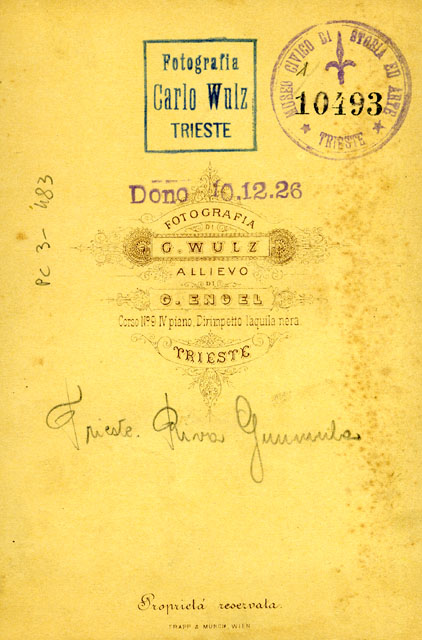 Fotografia
Carlo Wulz
TRIESTE
MUSEO CIVICO DI STORIA ED ARTE
TRIESTE
1
10493
Dono 10.12.26
PC 3-483
FOTOGRAFIA
DI
G. WULZ
ALLIEVO
DI
G. ENGEL
Corso No 9 IV piano, Dirimpetto l'aquila nera
TRIESTE
Trieste. Riva
Proprietá reservata.
TRAPP & MÜNCH, WIEN